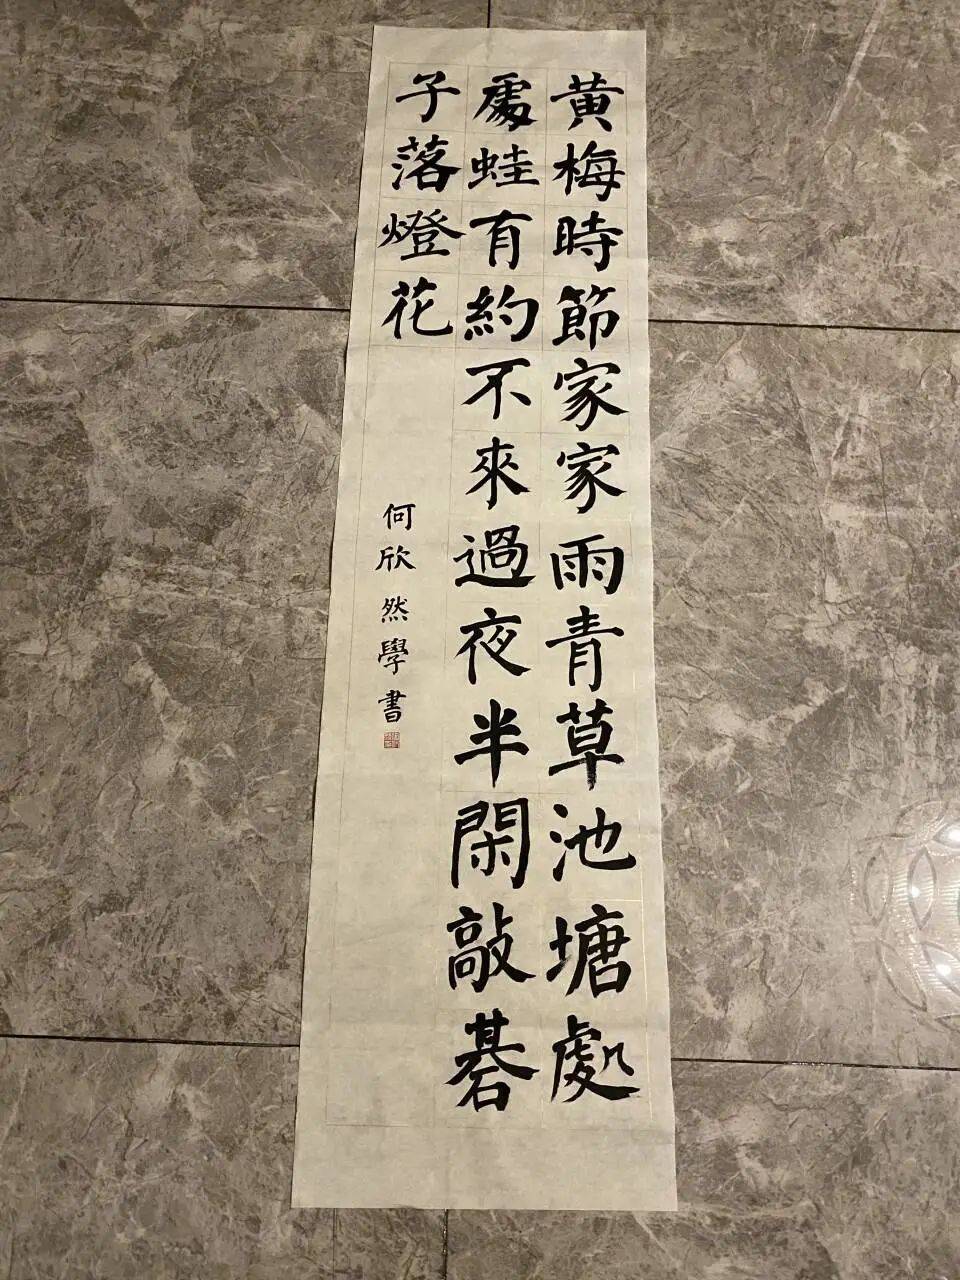 黄梅時節家家雨青草池塘處
處蛙有約不來過夜半閑敲碁
子落燈花
何欣然學書